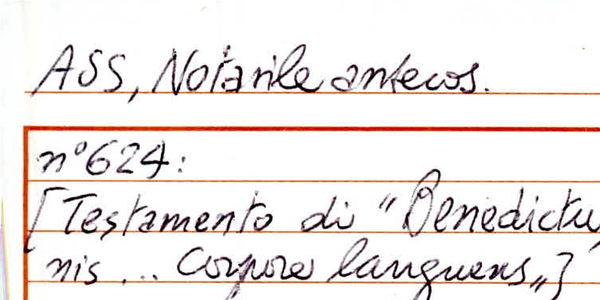 ASS, Notarile antecos.
n° 624:
[Testamento di "Benedictu
nis ... corpore languens„]